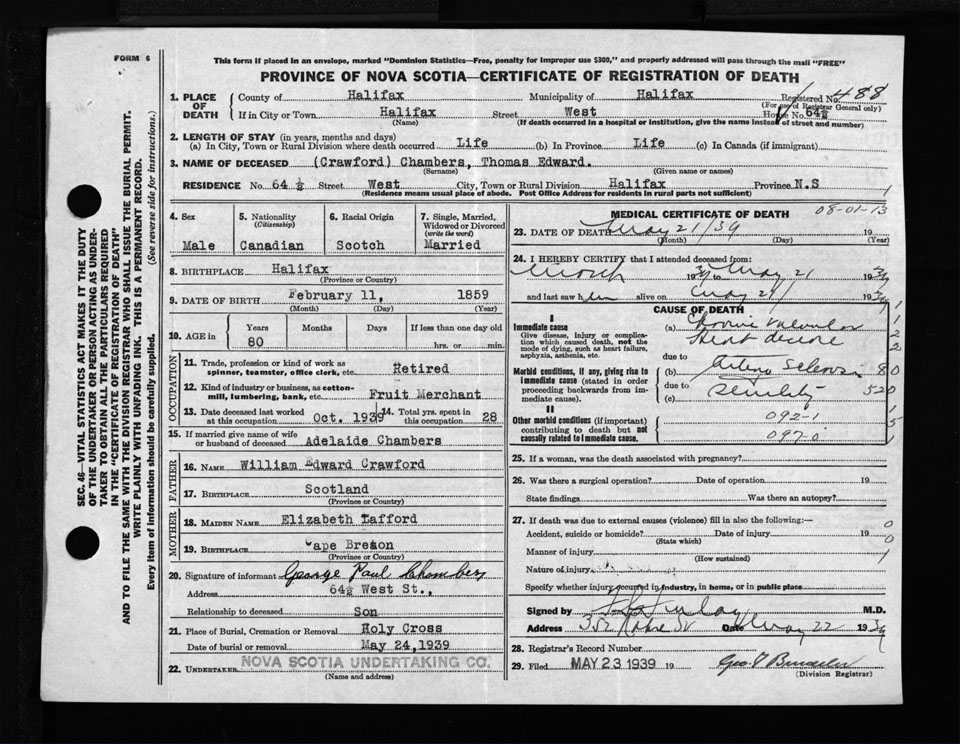 FORM 6
This form if placed in an envelope, marked "Dominion Statistics—Free, penalty for improper use $300," and properly addressed will pass through the mail "FREE"
PROVINCE OF NOVA SCOTIA—CERTIFICATE OF REGISTRATION OF DEATH
1. PLACE OF DEATH
County of Halifax Municipality of Halifax Registered No. 488
(For use of Registrar General only)
If in City or Town Halifax Street West House No. 64½
(Name) (If death occurred in a hospital or institution, give the name instead of street and number)
2. LENGTH OF STAY (in years, months and days)
(a) In City, Town or Rural Division where death occurred Life (b) In Province Life (c) In Canada (if immigrant)
3. NAME OF DECEASED (Crawford) Chambers, Thomas Edward.
(Surname) (Given name or names)
RESIDENCE No. 64 ½ Street West City, Town or Rural Division Halifax Province N.S
(Residence means usual place of abode. Post Office Address for residents in rural parts not sufficient)
4. Sex
Male
5. Nationality
(Citizenship)
Canadian
6. Racial Origin
Scotch
7. Single, Married, Widowed or Divorced
(write the word)
Married
8. BIRTHPLACE Halifax
(Province or Country)
9. DATE OF BIRTH February 11, 1859
(Month) (Day) (Year)
10. AGE in
Years Months Days If less than one day old
80 hrs. or min.
OCCUPATION
11. Trade, profession or kind of work as
spinner, teamster, office clerk, etc. Retired
12. Kind of industry or business, as cotton-
mill, lumbering, bank, etc. Fruit Merchant
13. Date deceased last worked
at this occupation Oct. 1939
14. Total yrs. spent in
this occupation 28
15. If married give name of wife
or husband of deceased Adelaide Chambers
FATHER
16. NAME William Edward Crawford
17. BIRTHPLACE Scotland
(Province or Country)
MOTHER
18. MAIDEN NAME Elizabeth Lafford
19. BIRTHPLACE Cape Breton
(Province or Country)
20. Signature of informant George Paul Chambers
Address 64½ West St.,
Relationship to deceased Son
21. Place of Burial, Cremation or Removal Holy Cross
Date of burial or removal May 24,1939
22. UNDERTAKER NOVA SCOTIA UNDERTAKING CO.
(Name and address)
MEDICAL CERTIFICATE OF DEATH 08-01-13
23. DATE OF DEATH May 21/39 19
(Month) (Day) (Year)
24. I HEREBY CERTIFY that I attended deceased from:
March 1939 to May 21 1939
and last saw him alive on May 21 1939
CAUSE OF DEATH
I
Immediate cause
Give disease, injury or complication which caused death, not the mode of dying, such as heart failure, asphyxia, asthenia, etc.
(a) Chronic Valvular
Heart disease
due to
Morbid conditions, if any, giving rise to immediate cause (stated in order proceeding backwards from immediate cause).
(b) Arterio Sclerosis
due to
(c) Senility
II
Other morbid conditions (if important) contributing to death but not causally related to immediate cause.
092-1
097-0
25. If a woman, was the death associated with pregnancy?
26. Was there a surgical operation? Date of operation 19
State findings Was there an autopsy?
27. If death was due to external causes (violence) fill in also the following:—
Accident, suicide or homicide? Date of injury 19
(State which)
Manner of injury
(How sustained)
Nature of injury
Specify whether injury occurred in industry, in home, or in public place
Signed by M.D.
Address 352 Date May 22 1939
28. Registrar's Record Number
29. Filed MAY 23 1939 19
(Division Registrar)
SEC. 46—VITAL STATISTICS ACT MAKES IT THE DUTY
OF THE UNDERTAKER OR PERSON ACTING AS UNDER-
TAKER TO OBTAIN ALL THE PARTICULARS REQUIRED
IN THE "CERTIFICATE OF REGISTRATION OF DEATH"
AND TO FILE THE SAME WITH THE DIVISION REGISTRAR WHO SHALL ISSUE THE BURIAL PERMIT.
WRITE PLAINLY WITH UNFADING INK. THIS IS A PERMANENT RECORD.
Every item of information should be carefully supplied. (See reverse side for instructions.)